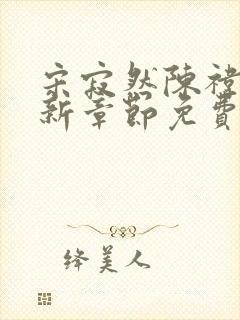 宋寂然陳禕
新章節免費
绛美人